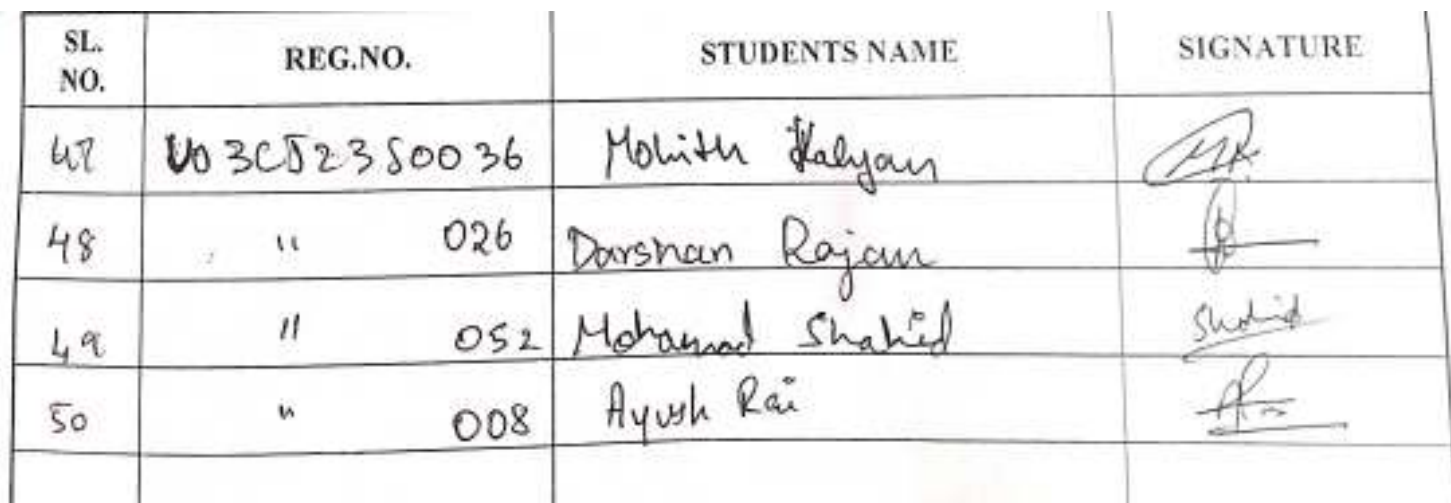 SL. NO. REG.NO. STUDENTS NAME SIGNATURE
47 U03CJ23S0036 Mohith Kalyan MK
48 " 026 Darshan Rajan
49 " 052 Mohamad Shahid Shahid
50 " 008 Ayush Rai